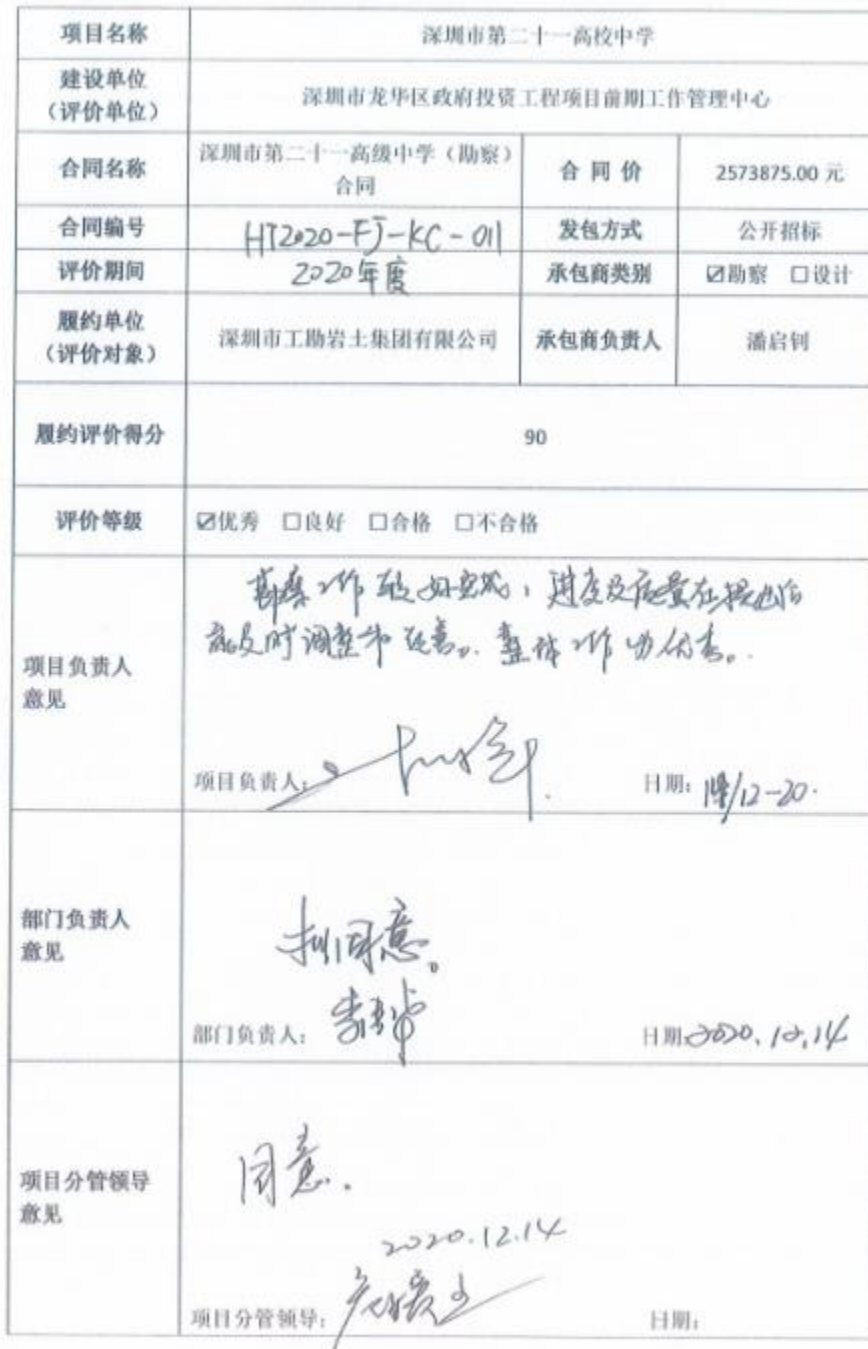 项目名称 深圳市第二十一高校中学
建设单位
（评价单位） 深圳市龙华区政府投资工程项目前期工作管理中心
合同名称 深圳市第二十一高级中学（勘察）
合同 合同价 2573875.00 元
合同编号 HT2020-FJ-KC-011 发包方式 公开招标
评价期间 2020年度 承包商类别 ☑勘察 □设计
履约单位
（评价对象） 深圳市工勘岩土集团有限公司 承包商负责人 潘启钊
履约评价得分 90
评价等级 ☑优秀 □良好 □合格 □不合格
项目负责人
意见
勘察工作较好完成，进度及质量在提出后
能及时调整和改善。整体工作为优秀。
项目负责人： 日期：14/12-20.
部门负责人
意见
拟同意。
部门负责人： 日期：2020.12.14
项目分管领导
意见
同意.
2020.12.14
项目分管领导： 日期：